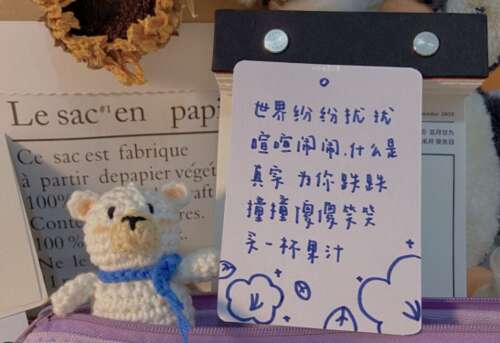 Le sac#1 en papi
Ce sac est fabriqué
à partir depapier végét
100 %
aft
Conte
100%
Ne le
世界纷纷扰扰
喧喧闹闹,什么是
真实 为你跌跌
撞撞傻傻笑笑
买一杯果汁